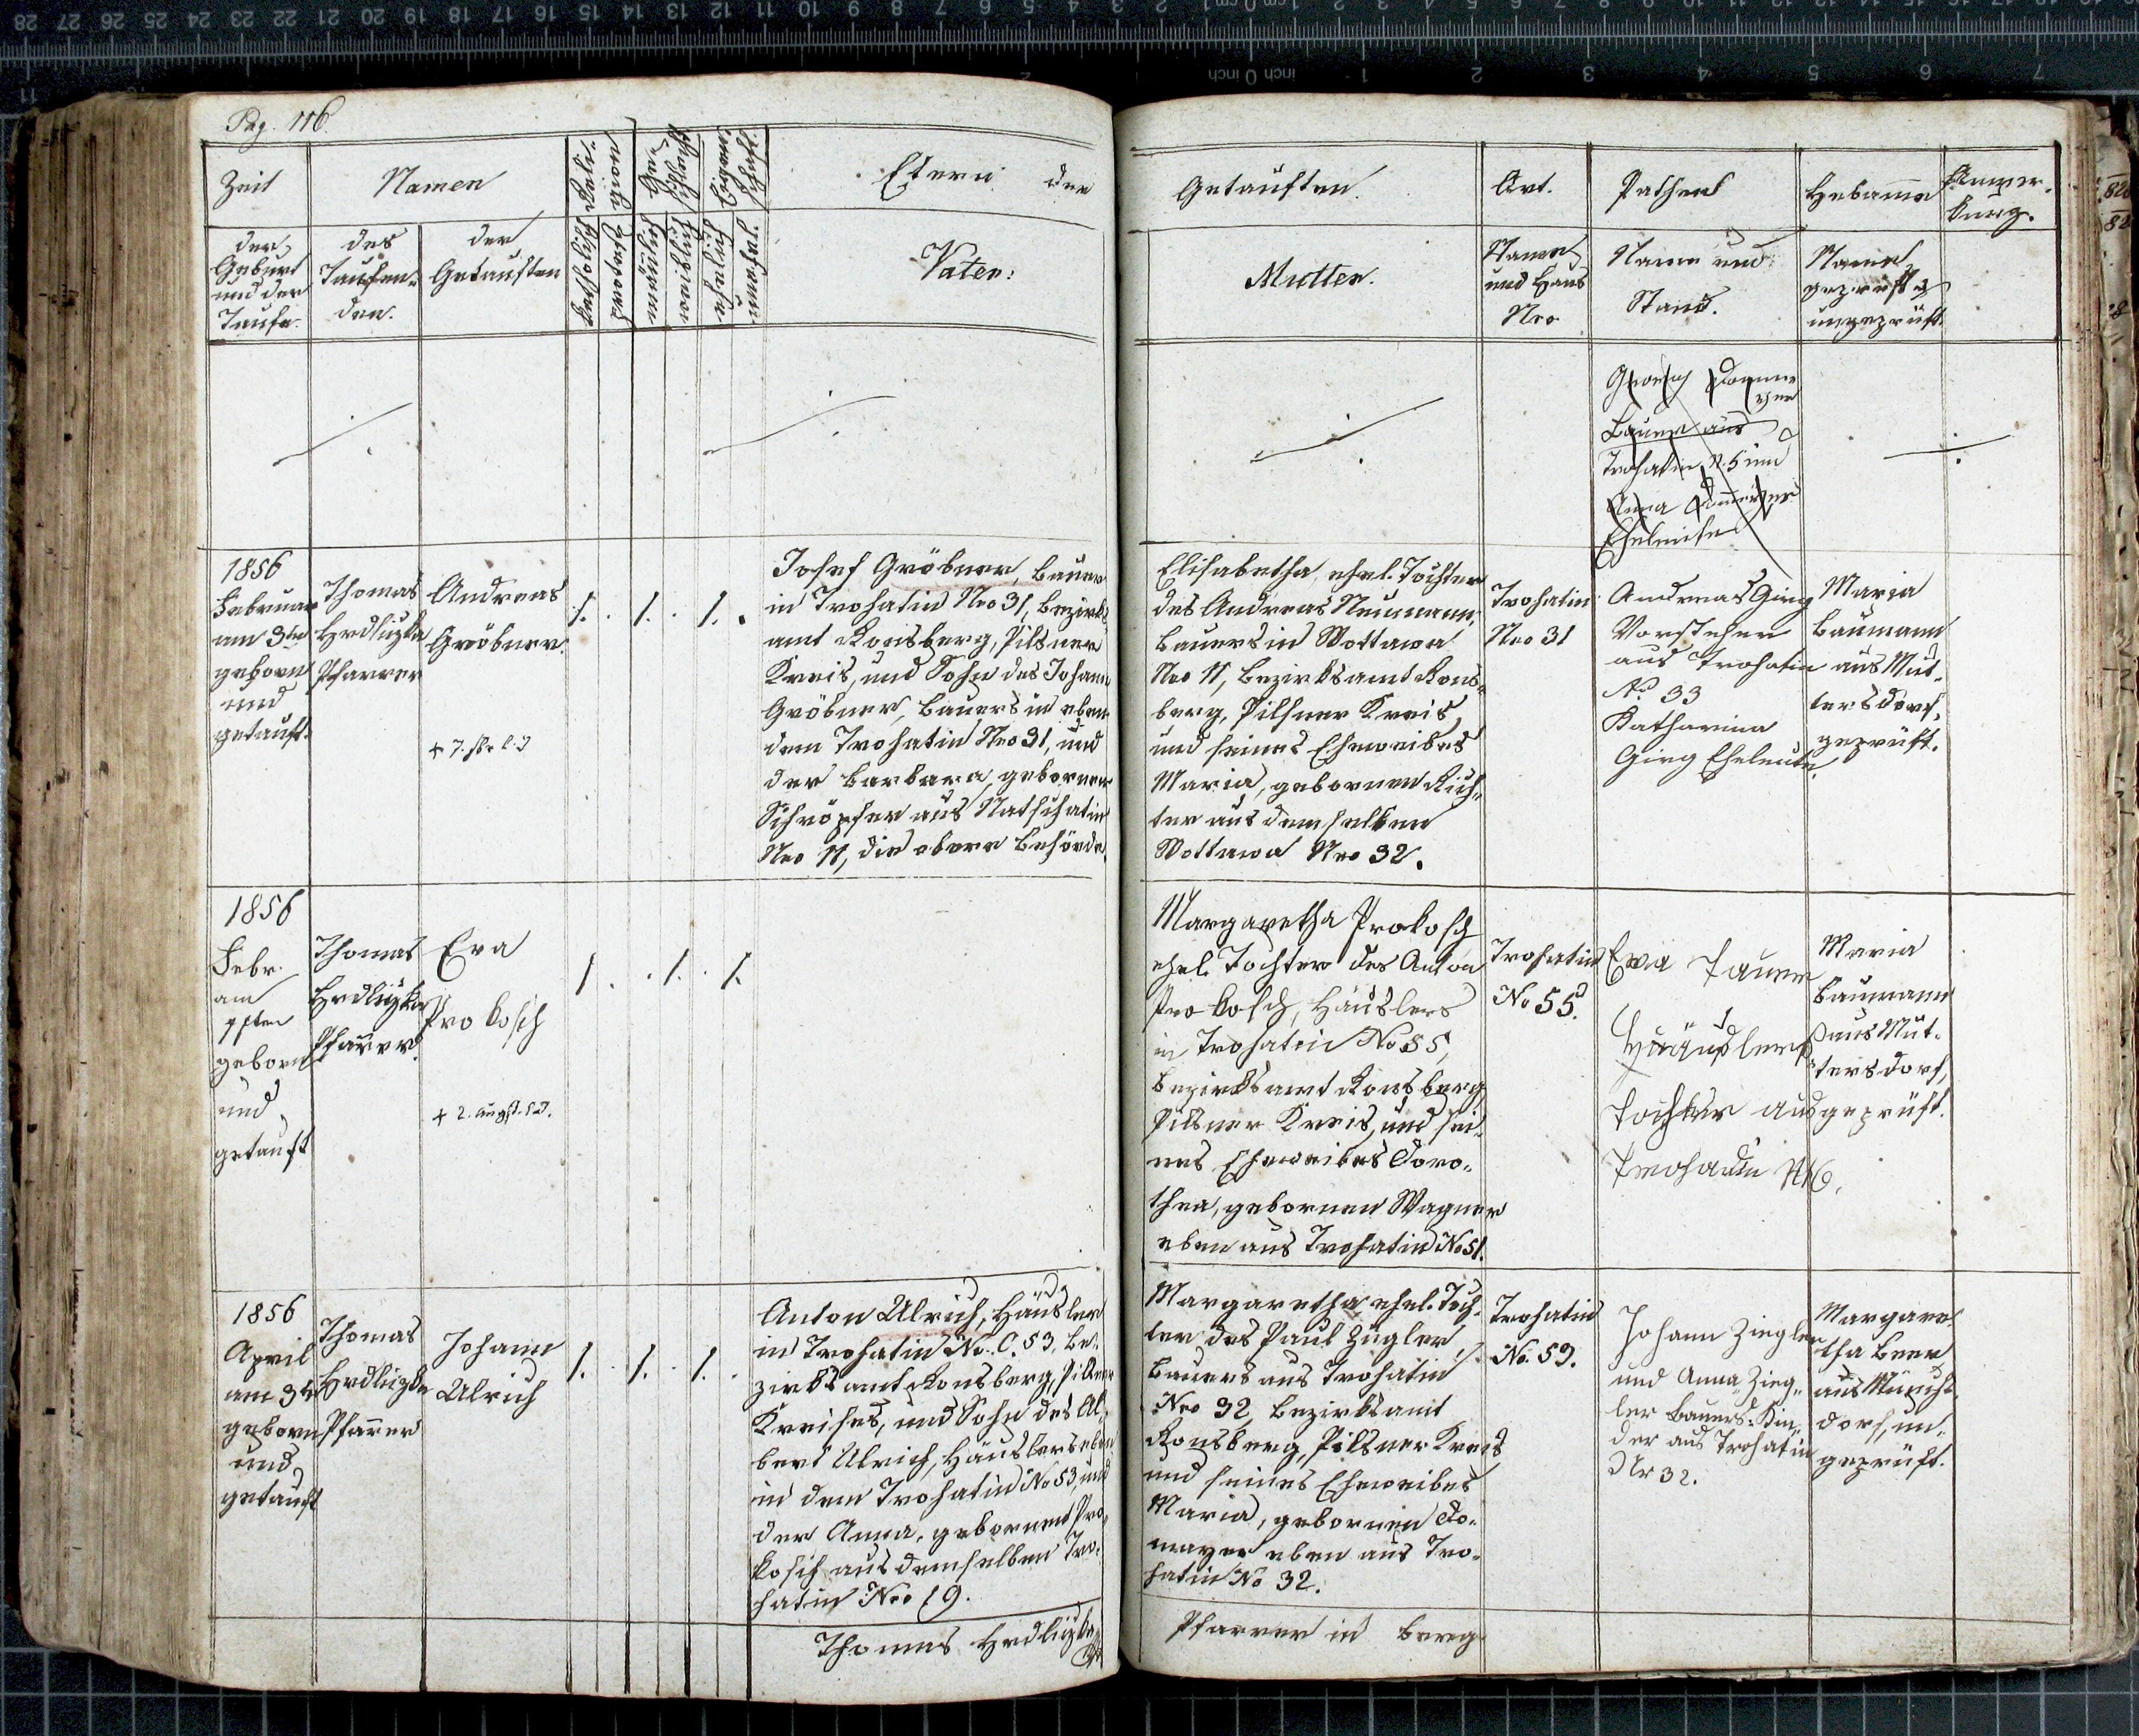 Pag. 116.
Zeit
Namen
Religion
Geschlecht
Eltern der
der Geburt und der Taufe.
des Taufenden.
der Getauften
Katholisch
Vater:
Getauften.
Ort.
Pathen
Hebamme
Anmerkung.
Mutter.
Name und Haus Nro
Name und Stand.
Name geprüft ungeprüft.
Bauer aus
Trohatin N. 5 und
Anna
Eheleute
1856
Februar
am 3ten
geboren
und
getauft.
Thomas
Hrdliczka
Pfarrer
Andreas
Gröbner.
Josef Gröbner, Bauer
in Trohatin Nro 31, Bezirks-
amt Ronsberg, Pilsner
Kreis, und Sohn des Johann
Gröbner, Bauers in eben
dem Trohatin Nro 31, und
der Barbara, gebornen
Schröpfer aus Natschatin
Nro 11, die obere Behörde.
Elisabetha, ehel. Tochter
des Andreas Neumann,
Bauers in Wottawa
Nro 11, Bezirksamt Rons-
berg, Pilsner Kreis,
und seines Eheweibes
Maria, gebornen Rich-
ter aus demselben
Wottawa Nro 32.
Trohatin
Nro 31
Andreas Girg
Vorsteher
aus Trohatin
No 33
Katharina
Girg Eheleute.
Maria
Baumann
aus Mut-
tersdorf,
geprüft.
1856
Febr.
am
geboren
und
getauft
Thomas
Hrdliczka
Pfarrer.
Eva
Prokosch
+ 2. August
Margaretha Prokosch
ehel. Tochter des Anton
Prokosch, Häuslers
in Trohatin No 55,
Bezirksamt Ronsberg
Pilsner Kreis, und sei-
nes Eheweibes Doro-
thea, gebornen Wagner
eben aus Trohatin No 51.
Trohatin
No 55.
Eva Bauer
Häuslers
Tochter aus
Trohatin
Maria
Baumann
aus Mut-
tersdorf,
geprüft.
1856
April
am
geboren
und
getauft
Thomas
Hrdliczka
Pfarrer
Johann
Ulrich
Anton Ulrich, Häusler
in Trohatin No. C. 53, Be-
zirksamt Ronsberg, Pilsner
Kreises, und Sohn des Al-
bert Ulrich, Häuslers eben
in dem Trohatin No 53, und
der Anna, gebornen Pro-
kosch aus demselben Tro-
hatin Nro 19.
Margaretha, ehel. Toch-
ter des Paul Zügler,
Bauers aus Trohatin
Nro 32, Bezirksamt
Ronsberg, Pilsner Kreis
und seines Eheweibes
Maria, gebornen Do-
mayer eben aus Tro-
hatin No 32.
Trohatin
No. 53.
Johann Ziegler
und Anna Zieg-
ler Bauers-Kin-
der aus Trohatin
Nr 32.
Margare-
tha Beer
aus Münch-
dorf, un-
geprüft.
Thomas Hrdliczka
Pfarrer in Berg.